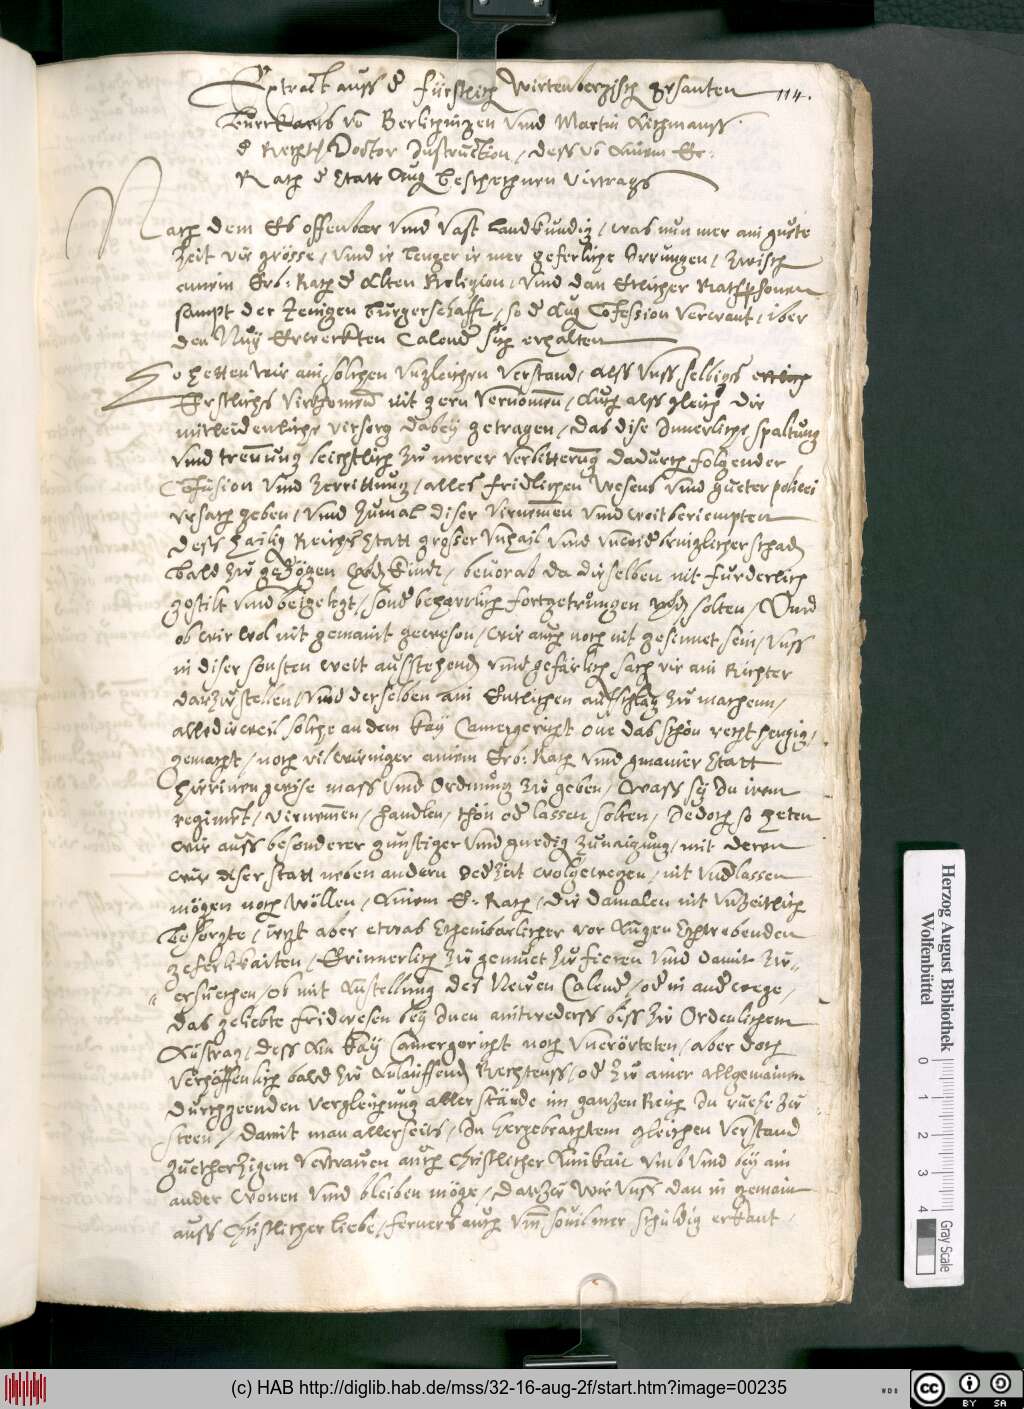 Extract auss d Fürstlich Wirtenbergisch gesanten 114.
Burckarts vō Berlichingen vnd Martin Aichmanss
d Rechtē Doctor Instruction, dess vō Ainem Er:
Rath d Statt Aug beschehenen vertrags
Nach dem Es offenbar vnd vast landkundig, was nun mer ain guete
Zeit vir grösse, vnd ie lenger ie mer geferliche Irrungen, zwisch
ainem Erb: Rath d Alten Religion, vnd dan Etlicher Rathspersonen
sampt der Jenigen burgerschafft, so d Aug Cofession verwant, iber
den Nuy Erwerkten Calend sich erhalten
So hetten wir ain solchen vngleichen verstand, alss vnss selbigs
Erstlichs virkomend nit gern vernomen, Auch alss gleich die
mitleidenliche virsorg dabey getragen, das dise Innerliche spaltung
vnd trennung leichtlich zu merer verbitterung dadurch folgender
Cofusion vnd zerrittung, alles fridlichen wesens vnd gueter policei
vrsach geben, vnd zumal diser virnemen vnd weit beriempten
dess hailig Reichs Statt grosser vnhail vnd vnwid schad
bald zu kindt, beuorab da dieselben nit furderlich
gestilt vnd beigelegt, sond beharrlich fortgetrungen solten, Vnd
ob wir wol nit gemaint gewesen, wir auch noch nit gesinnet sein, vnss
in diser sonsten weit aussehend vnd gefärlich sach vir ain Richter
darzustellen, vnd derselben ain Entlichen ausschlag zu machenn,
alldieweil solche an dem Kay Camergericht one das schon recht hengig,
gemacht, noch vil weniger ainem Erb: Rath vnd gmainer Statt
hierinen gewise mass vnd Ordnung zu geben, Wass sy In irem
regiment, virnemen, handlen, thon od lassen solten, Jedoch so heten
wir auss besonderer gunstiger vnd gnedig zunaigung, mit deren
wir diser statt neben andern Jedzeit wolgewegen, nit vndlassen
mögen noch wöllen, Ainem E: Rath, die damalen nit vnzeitlich
besorgte, ietzt aber etwas Scheinbarlicher vor Augen Schwebenden
geferlikaiten, Erinnerlich zu gemuet zu fieren vnd damit zu
ersuechen, ob mit Anstellung des Neuen Calend, od in and wege,
das geliebte fridwesen bey Inen aintweders biss zu Ordenlichem
Austrag, dess Am Kay Camergericht noch vnerörteten, aber doch
verhoffenlich bald zu Anlauffend Rechtenss, od zu ainer allgemainen
durchgeenden vergleichung aller stände im ganzen Reich In ruehe zu
steen, damit man allerseits, In hergebrachtem gleichen verstand
guetherzigem vertrauen auch Christlicher Ainikait vmb vnd bey ain
ander wonen vnd bleiben möge, darzu wir vnss dan in gemain
auss Christlicher liebe, ferners auch vmb souil mer schuldig erkant,
Herzog August Bibliothek
Wolfenbüttel
0 1 2 3 4
Gray Scale
(c) HAB http://diglib.hab.de/mss/32-16-aug-2f/start.htm?image=00235
WDB
cc BY SA